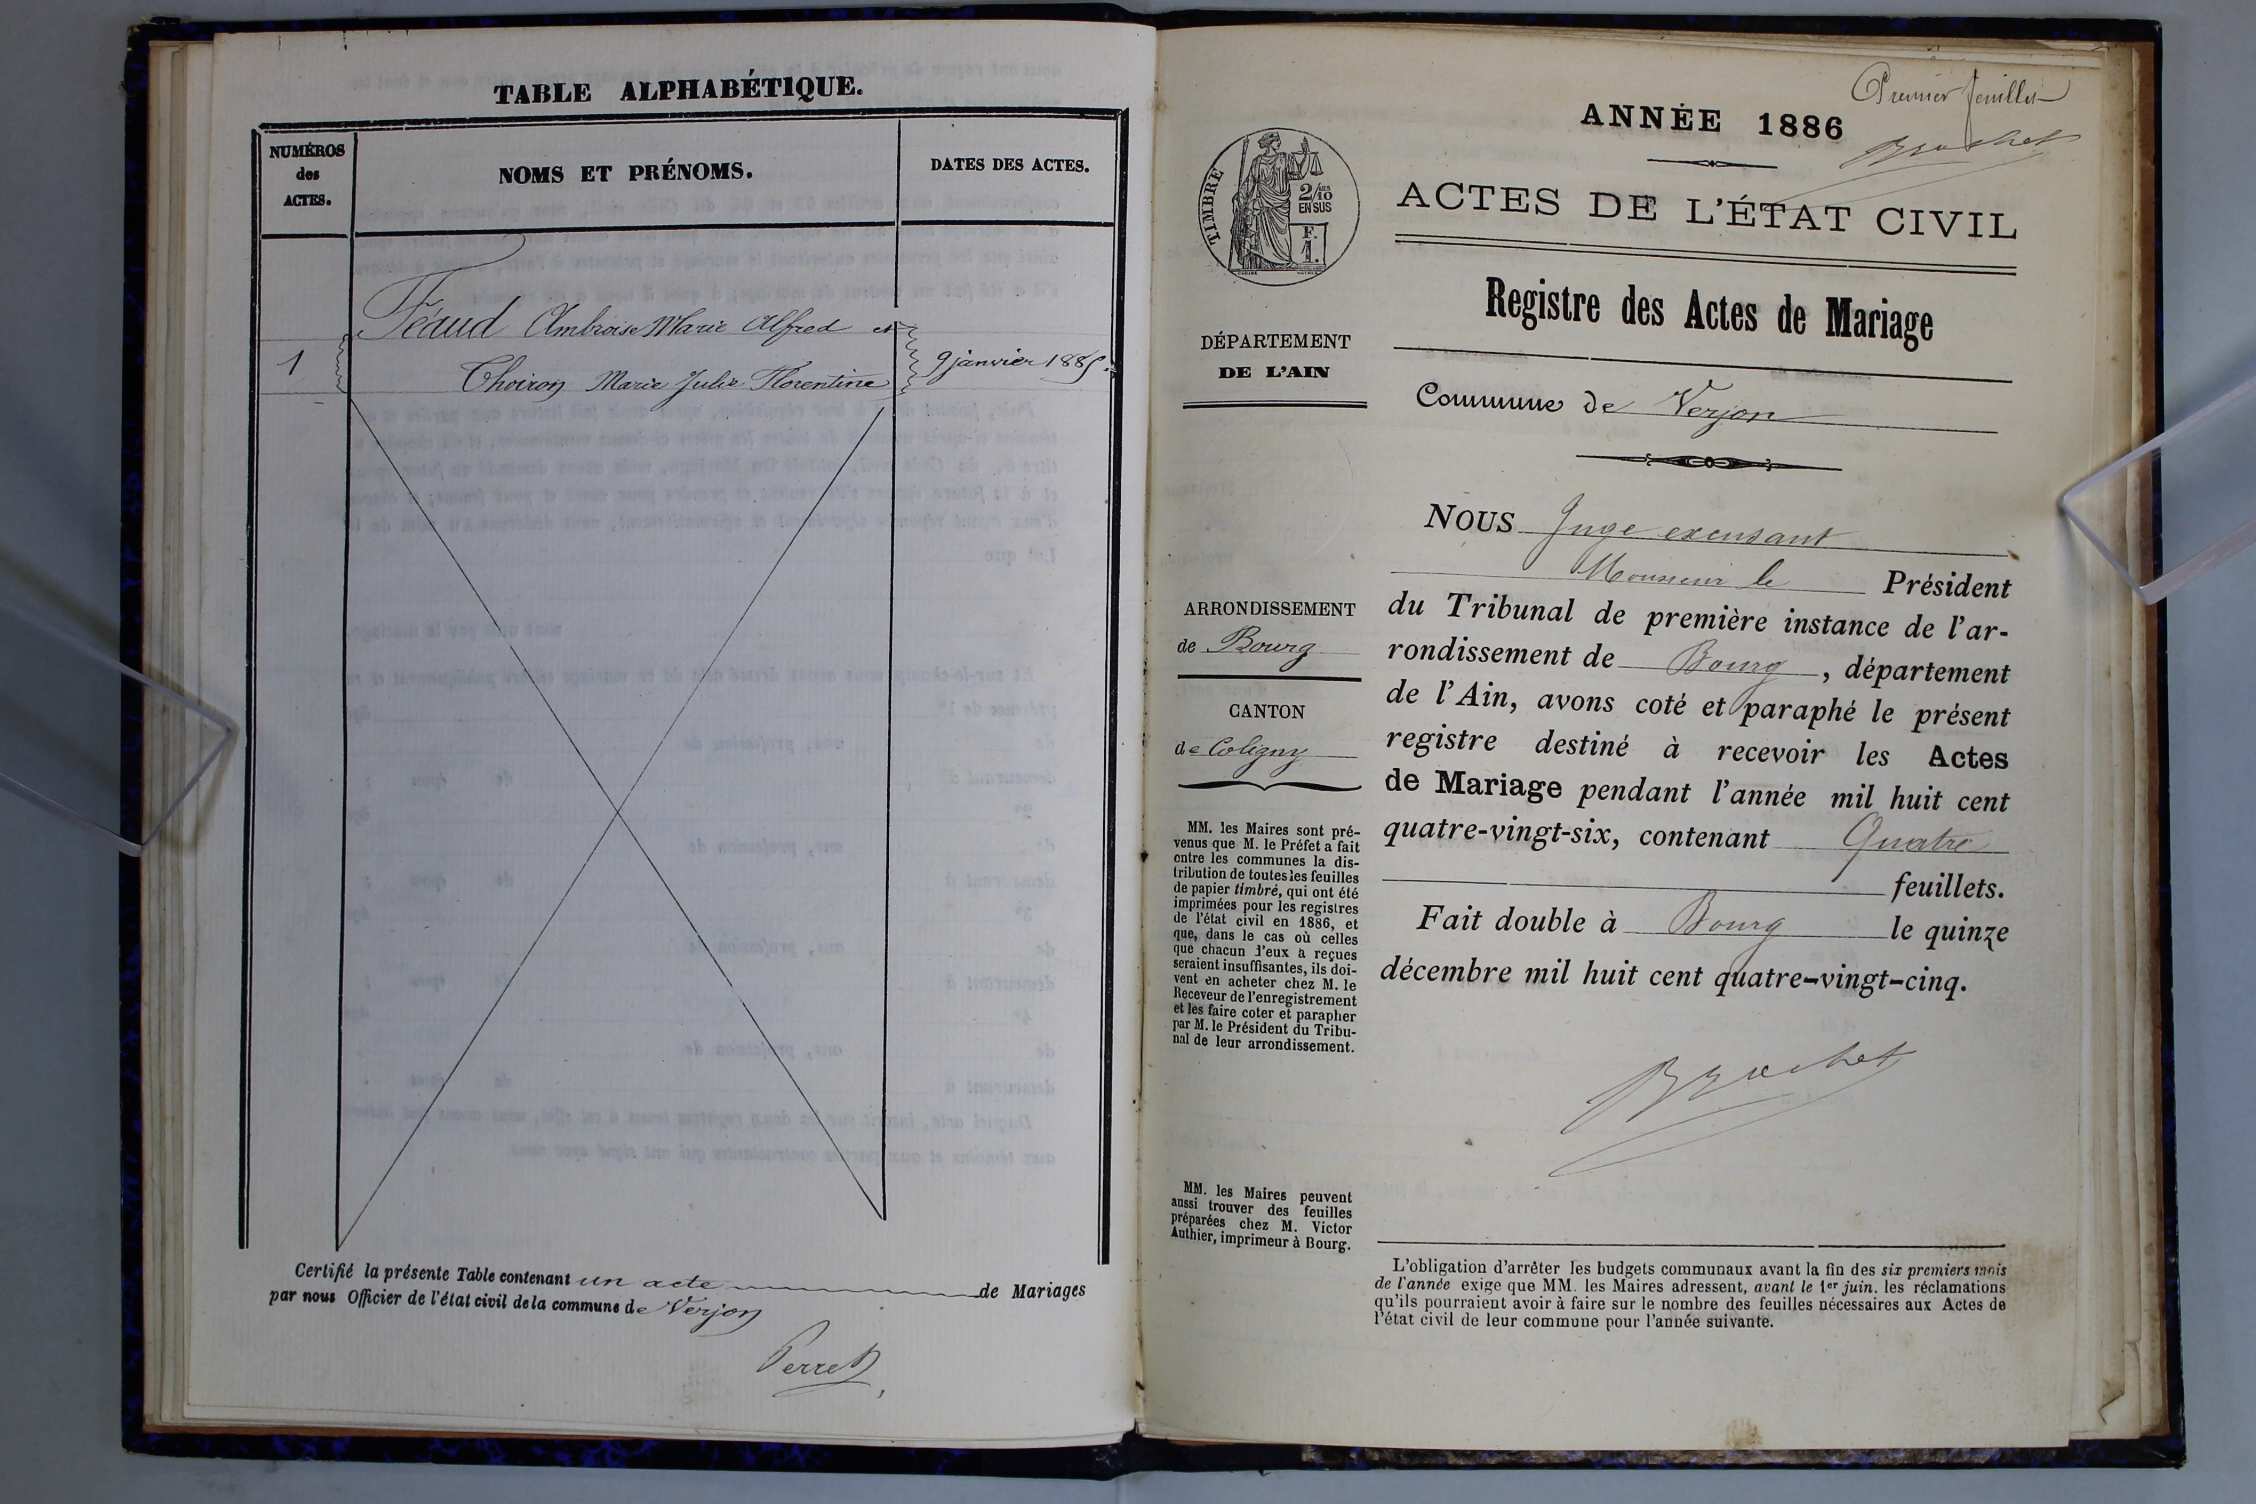 TABLE ALPHABÉTIQUE.
NUMÉROS
des
ACTES.
NOMS ET PRÉNOMS.
DATES DES ACTES.
Féaud Ambroise Marie Alfred et
1
Choiron Marie Julie Florentine
9 janvier 1885.
Certifié la présente Table contenant un acte de Mariages
par nous Officier de l'état civil de la commune de Verjon
Perret
Premier feuillet
Brochet
ANNÉE 1886
TIMBRE
2/10
EN SUS
F.
1.
ACTES DE L'ÉTAT CIVIL
Registre des Actes de Mariage
DÉPARTEMENT
DE L'AIN
Commune de Verjon
ARRONDISSEMENT
de Bourg
CANTON
de Coligny
MM. les Maires sont pré-
venus que M. le Préfet a fait
entre les communes la dis-
tribution de toutes les feuilles
de papier timbré, qui ont été
imprimées pour les registres
de l'état civil en 1886, et
que, dans le cas où celles
que chacun d'eux a reçues
seraient insuffisantes, ils doi-
vent en acheter chez M. le
Receveur de l'enregistrement
et les faire coter et parapher
par M. le Président du Tribu-
nal de leur arrondissement.
MM. les Maires peuvent
aussi trouver des feuilles
préparées chez M. Victor
Authier, imprimeur à Bourg.
NOUS Juge excusant
Monsieur le Président
du Tribunal de première instance de l'ar-
rondissement de Bourg, département
de l'Ain, avons coté et paraphé le présent
registre destiné à recevoir les Actes
de Mariage pendant l'année mil huit cent
quatre-vingt-six, contenant Quatre
feuillets.
Fait double à Bourg le quinze
décembre mil huit cent quatre-vingt-cinq.
Brochet
L'obligation d'arrêter les budgets communaux avant la fin des six premiers mois
de l'année exige que MM. les Maires adressent, avant le 1er juin. les réclamations
qu'ils pourraient avoir à faire sur le nombre des feuilles nécessaires aux Actes de
l'état civil de leur commune pour l'année suivante.